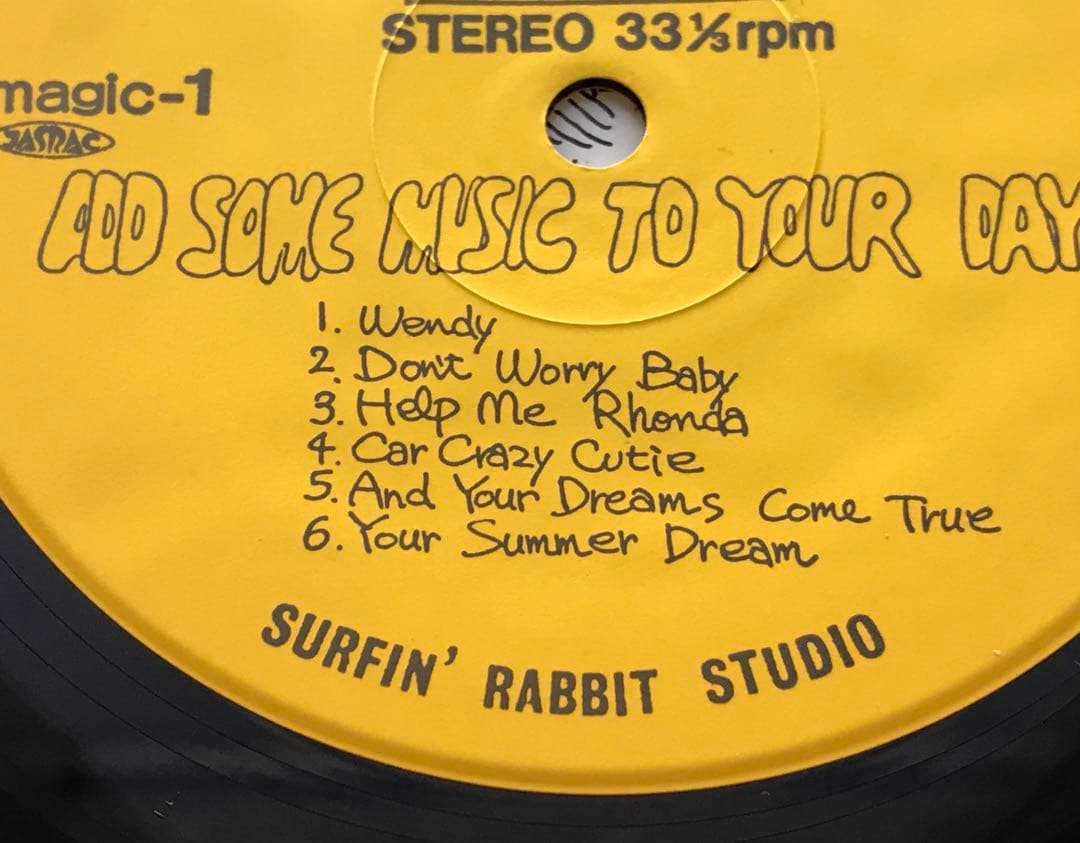 STEREO 33⅓rpm
magic-1
JASRAC
ADD SOME MUSIC TO YOUR DAY
1. Wendy
2. Don't Worry Baby
3. Help Me Rhonda
4. Car Crazy Cutie
5. And Your Dreams Come True
6. Your Summer Dream
SURFIN' RABBIT STUDIO